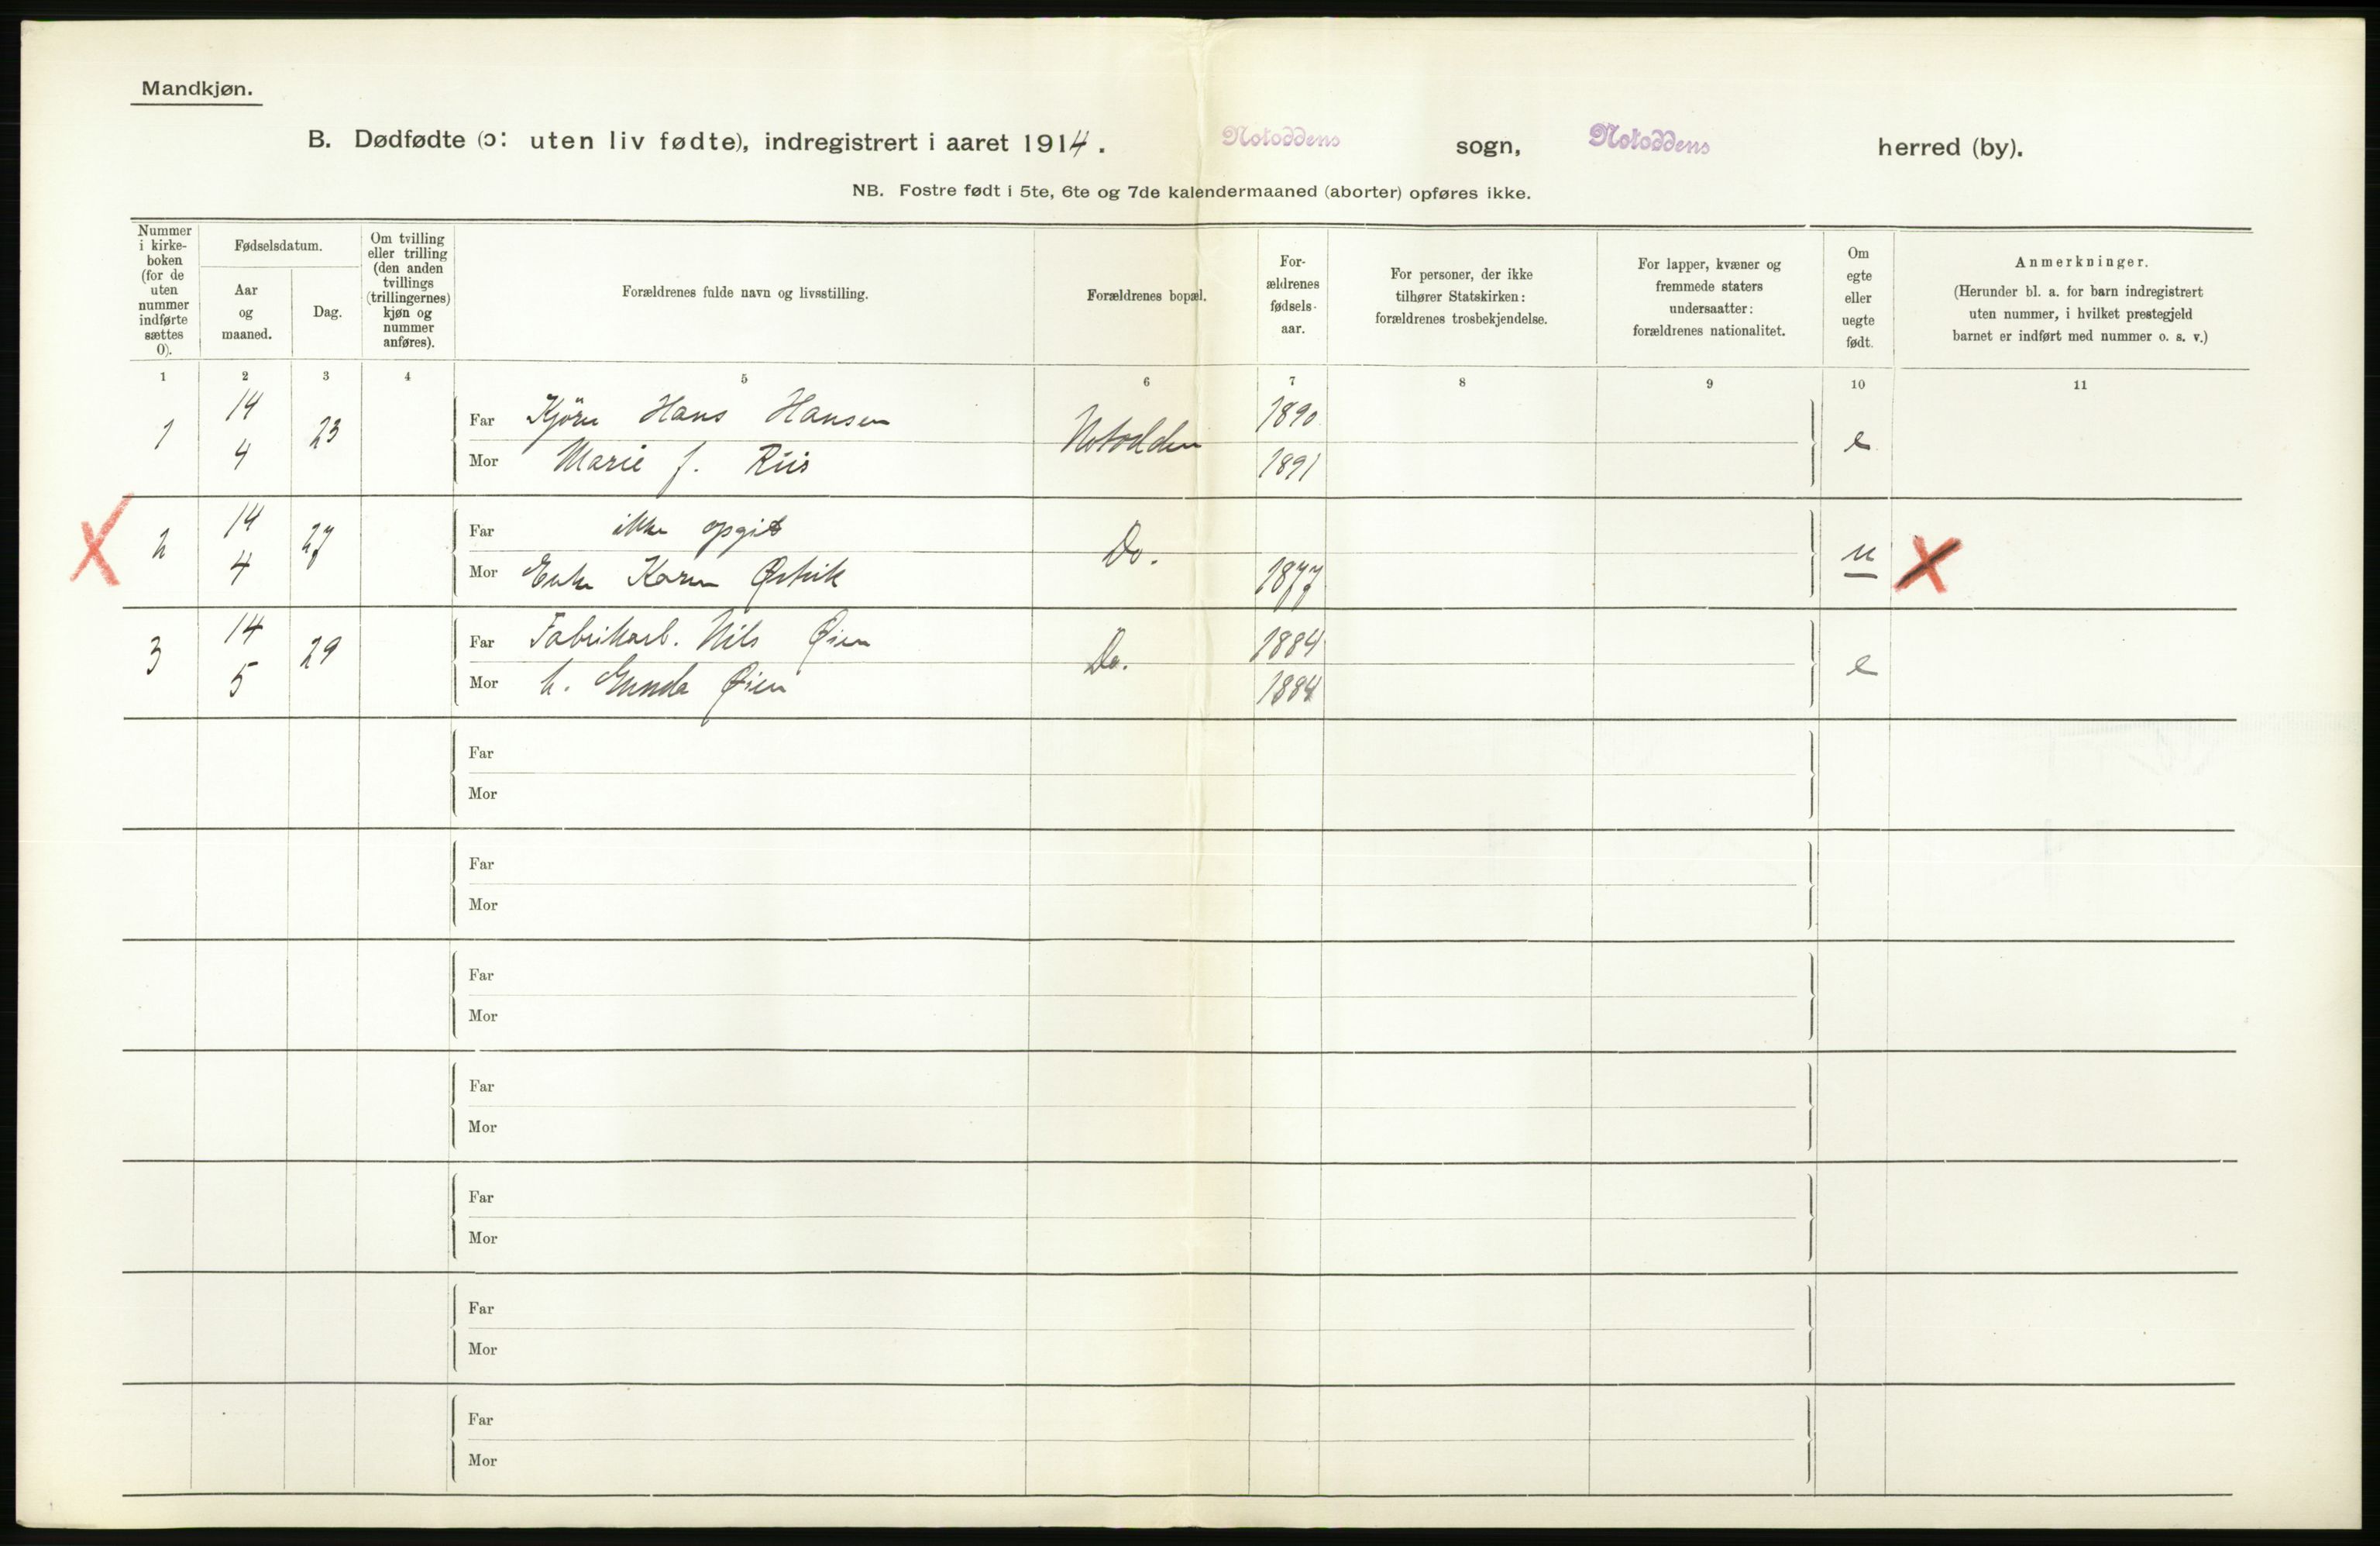 Mandkjøn.
B. Dødfødte (ɔ: uten liv fødte), indregistrert i aaret 1914. Notoddens sogn, Notoddens herred (by).
NB. Fostre født i 5te, 6te og 7de kalendermaaned (aborter) opføres ikke.
Nummer
i kirke-
boken
(for de
uten
nummer
indførte
sættes
0).
Fødselsdatum.
Aar
og
maaned.
Dag.
Om tvilling
eller trilling
(den anden
tvillings
(trillingernes)
kjøn og
nummer
anføres).
Forældrenes fulde navn og livsstilling.
Forældrenes bopæl.
For-
ældrenes
fødsels-
aar.
For personer, der ikke
tilhører Statskirken:
forældrenes trosbekjendelse.
For lapper, kvæner og
fremmede staters
undersaatter:
forældrenes nationalitet.
Om
egte
eller
uegte
født.
Anmerkninger.
(Herunder bl. a. for barn indregistrert
uten nummer, i hvilket prestegjeld
barnet er indført med nummer o. s. v.)
1 2 3 4 5 6 7 8 9 10 11
1 14 4 23 Far Kjörer Hans Hansen Notodden 1890 e
Mor Marie f. Riis 1891
2 14 4 27 Far ikke opgit Do. u
Mor Enke Karen Ørtvik 1877
3 14 5 29 Far Fabrikarb. Nils Øien Do. 1884 e
Mor h. Gunda Øien 1884
Far
Mor
Far
Mor
Far
Mor
Far
Mor
Far
Mor
Far
Mor
Far
Mor